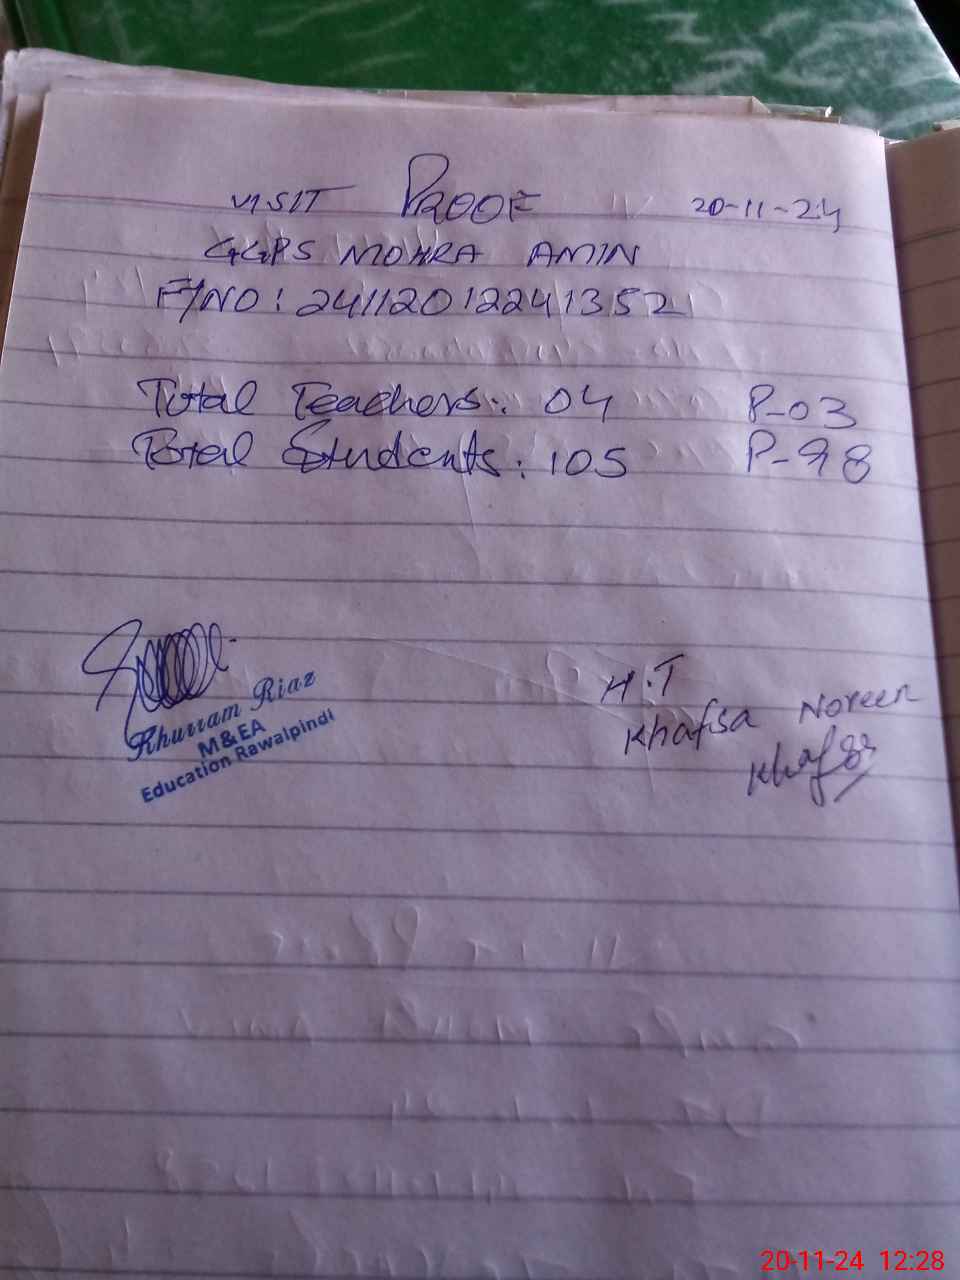 VISIT PROOF 20-11-24
GGPS MOHRA AMIN
F/NO: 24112012241352
Total Teachers: 04 P-03
Total Students: 105 P-98
Khurram Riaz
M&EA
Education Rawalpindi
H.T
Khafsa Noreen
20-11-24 12:28